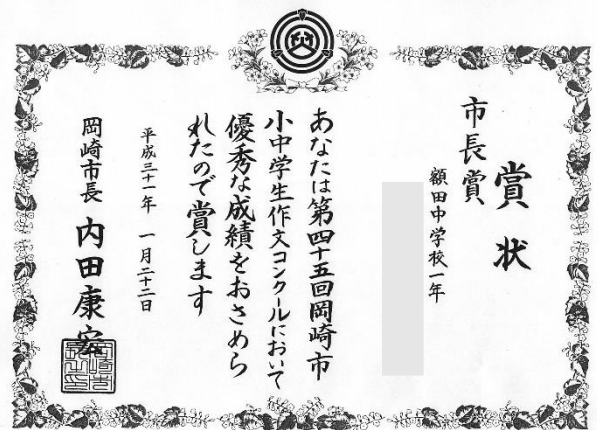 賞状
市長賞
額田中学校一年
あなたは第四十五回岡崎市
小中学生作文コンクールにおいて
優秀な成績をおさめら
れたので賞します
平成三十一年 一月二十二日
岡崎市長 内田康宏